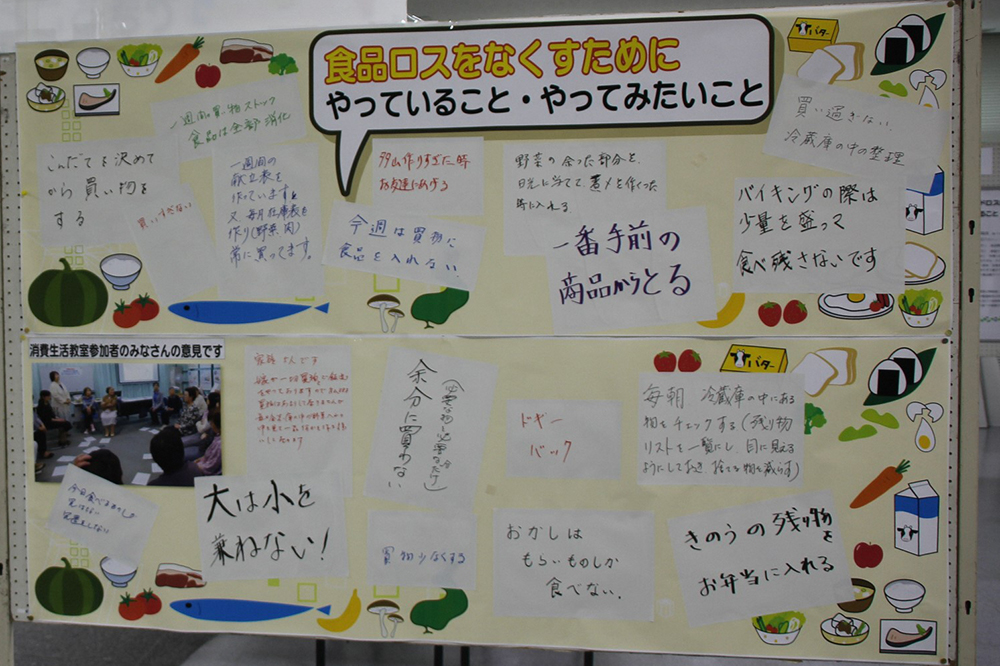 食品ロスをなくすために
やっていること・やってみたいこと
バター
一週間の買い物ストック
食品は全部消化
こんだてを決めて
から買い物を
する
買いすぎない
一週間の
献立表を
作っています
又毎月在庫表を
作り(野菜 肉)
常に買ってます。
沢山作りすぎた時
お友達にあげる
今週は買物に
食品を入れない
野菜の余った部分を、
日光に当てて、煮〆を作った
時に入れる
一番手前の
商品からとる
買い過ぎない、
冷蔵庫の中の整理
バイキングの際は
少量を盛って
食べ残さないです
消費生活教室参加者のみなさんの意見です
バター
家族5人です
余分に買わない
(必要な物を必要なだけ)
ドギー
バック
毎朝 冷蔵庫の中にある
物をチェックする(残り物
リストを一覧にし、目に見える
ようにしておき、捨てる物を減らす)
大は小を
兼ねない!
買物少なくする
おかしは
もらいものしか
食べない。
きのうの残り物を
お弁当に入れる